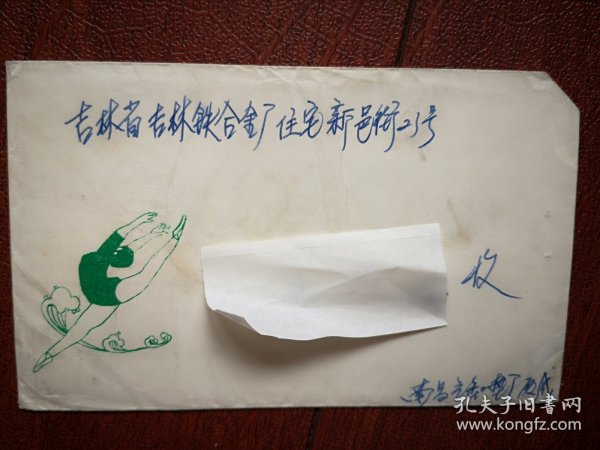 吉林省吉林铁合金厂住宅新邑街23号
收
南昌
孔夫子旧书网
www.kongfz.com